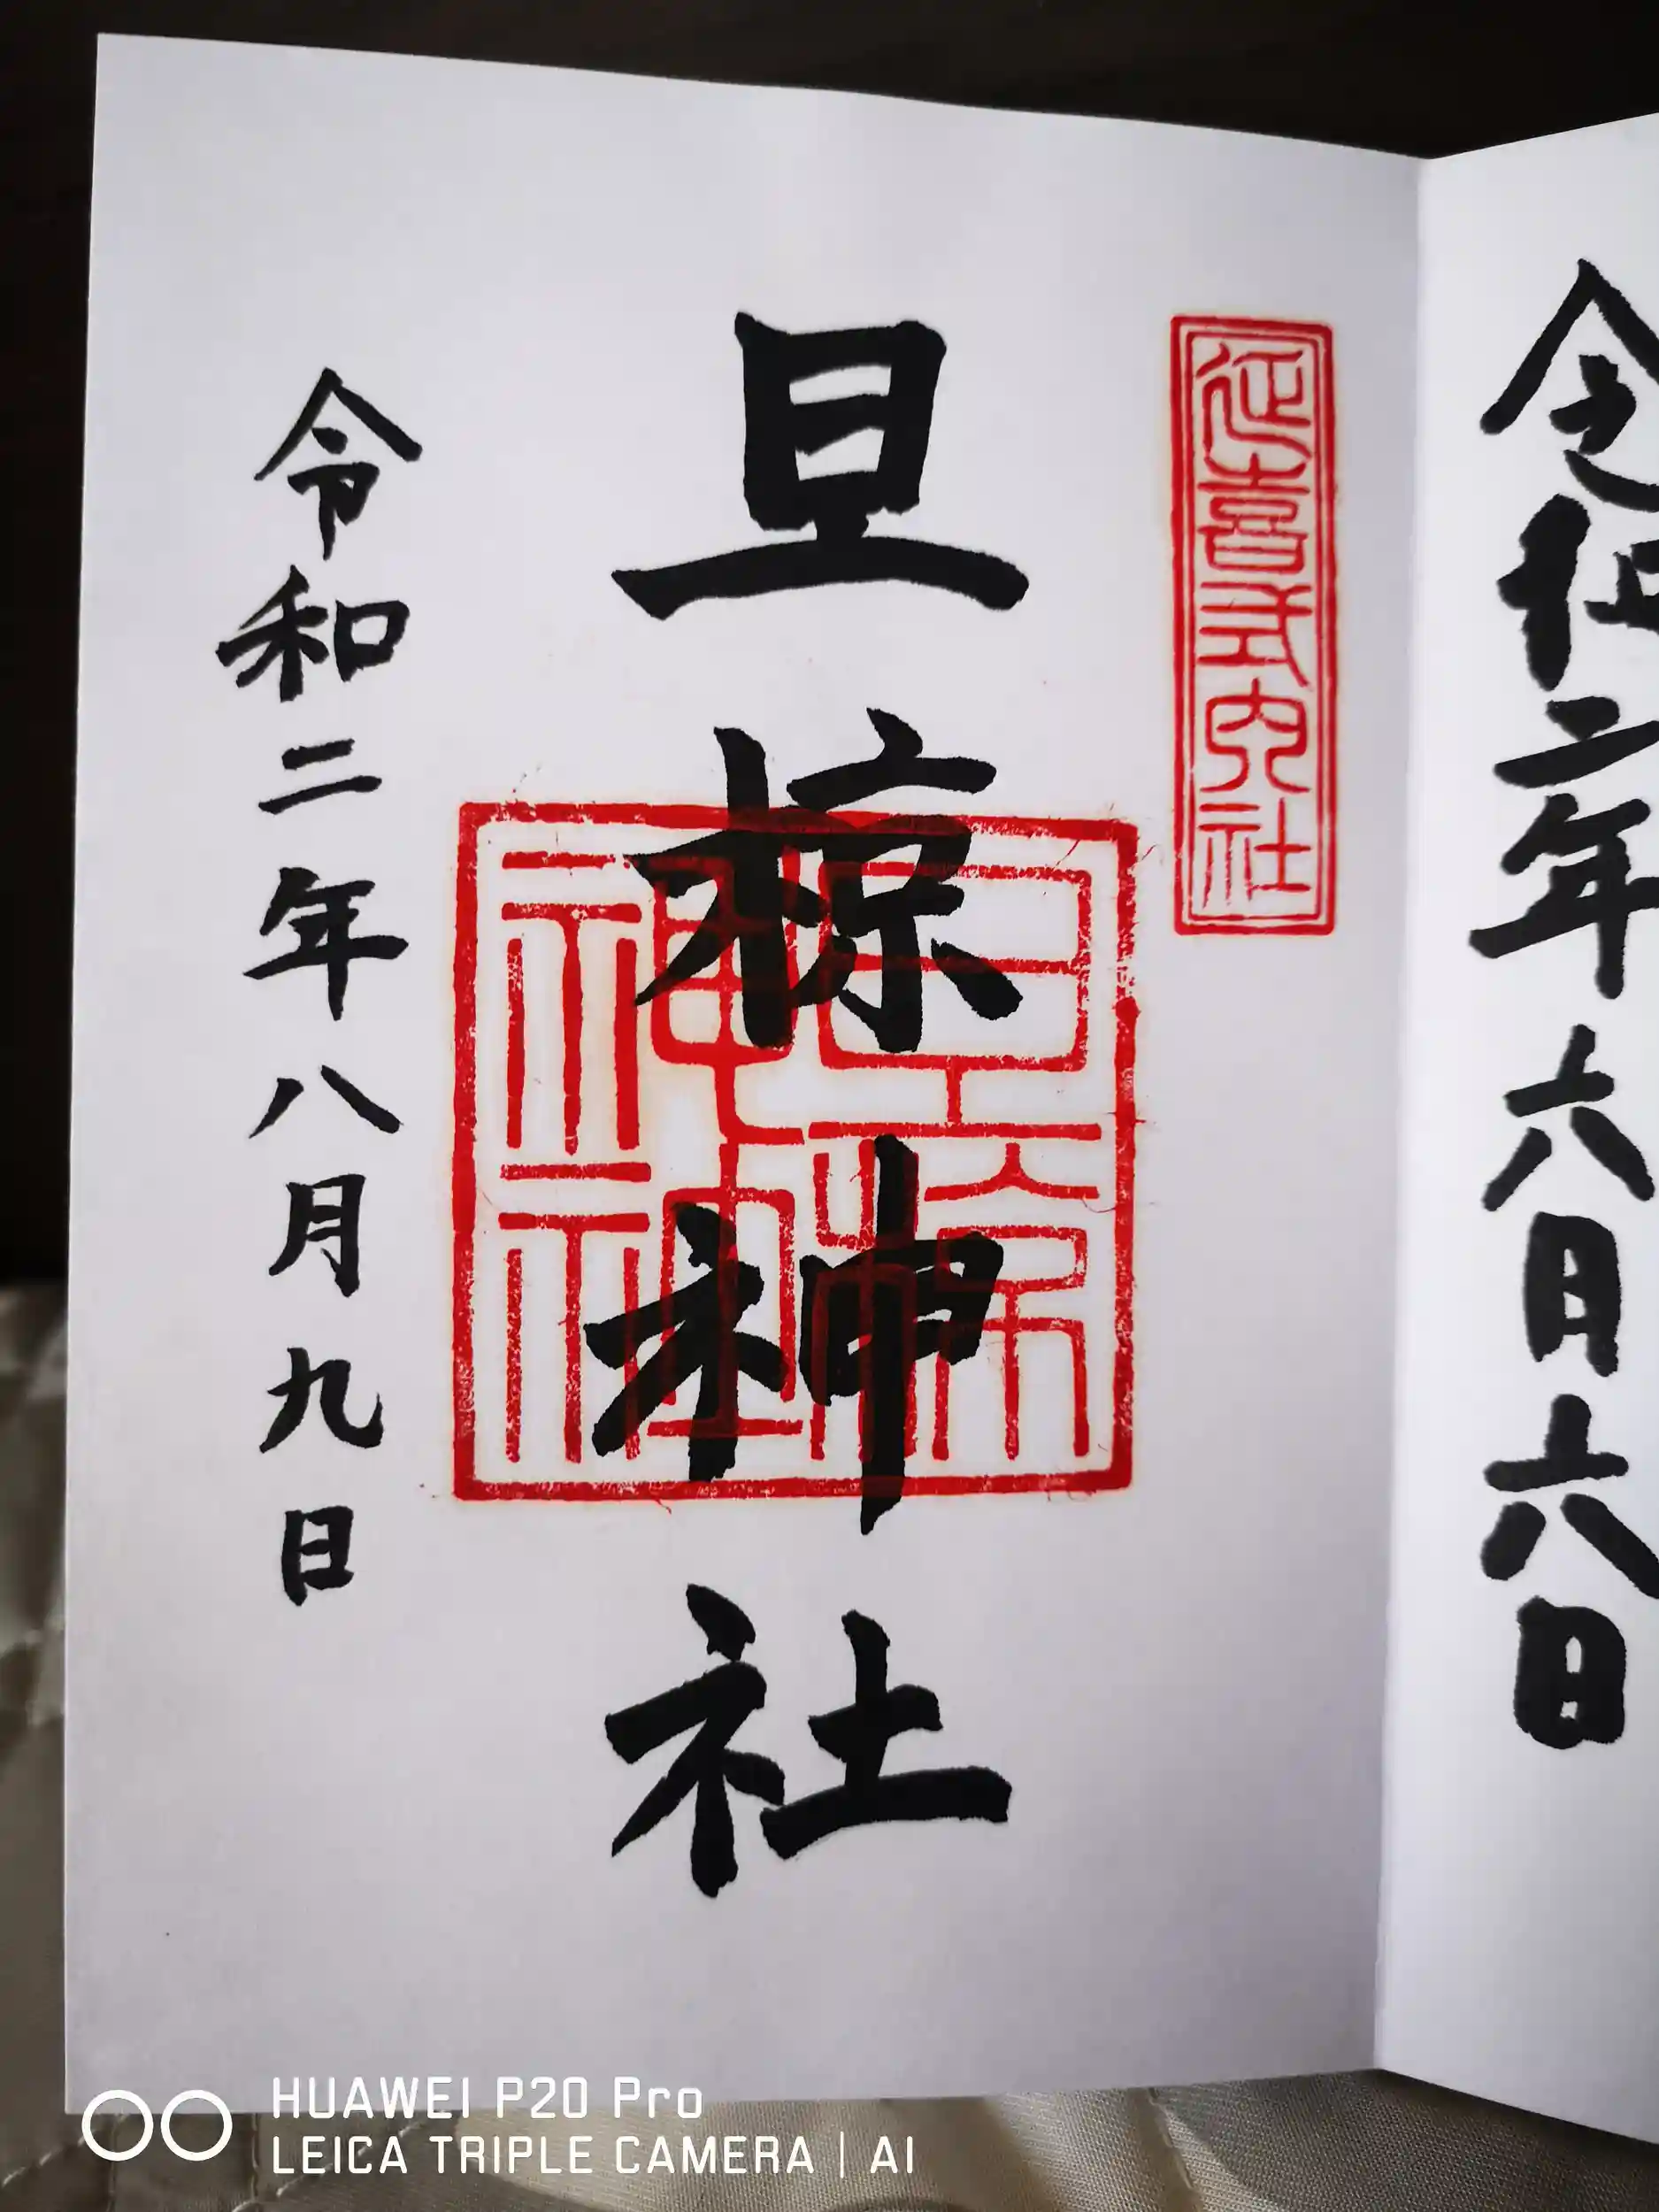 令和二年六月六日
延喜式内社
旦椋神社
旦椋神社
神社
令和二年八月九日
HUAWEI P20 Pro
LEICA TRIPLE CAMERA | AI